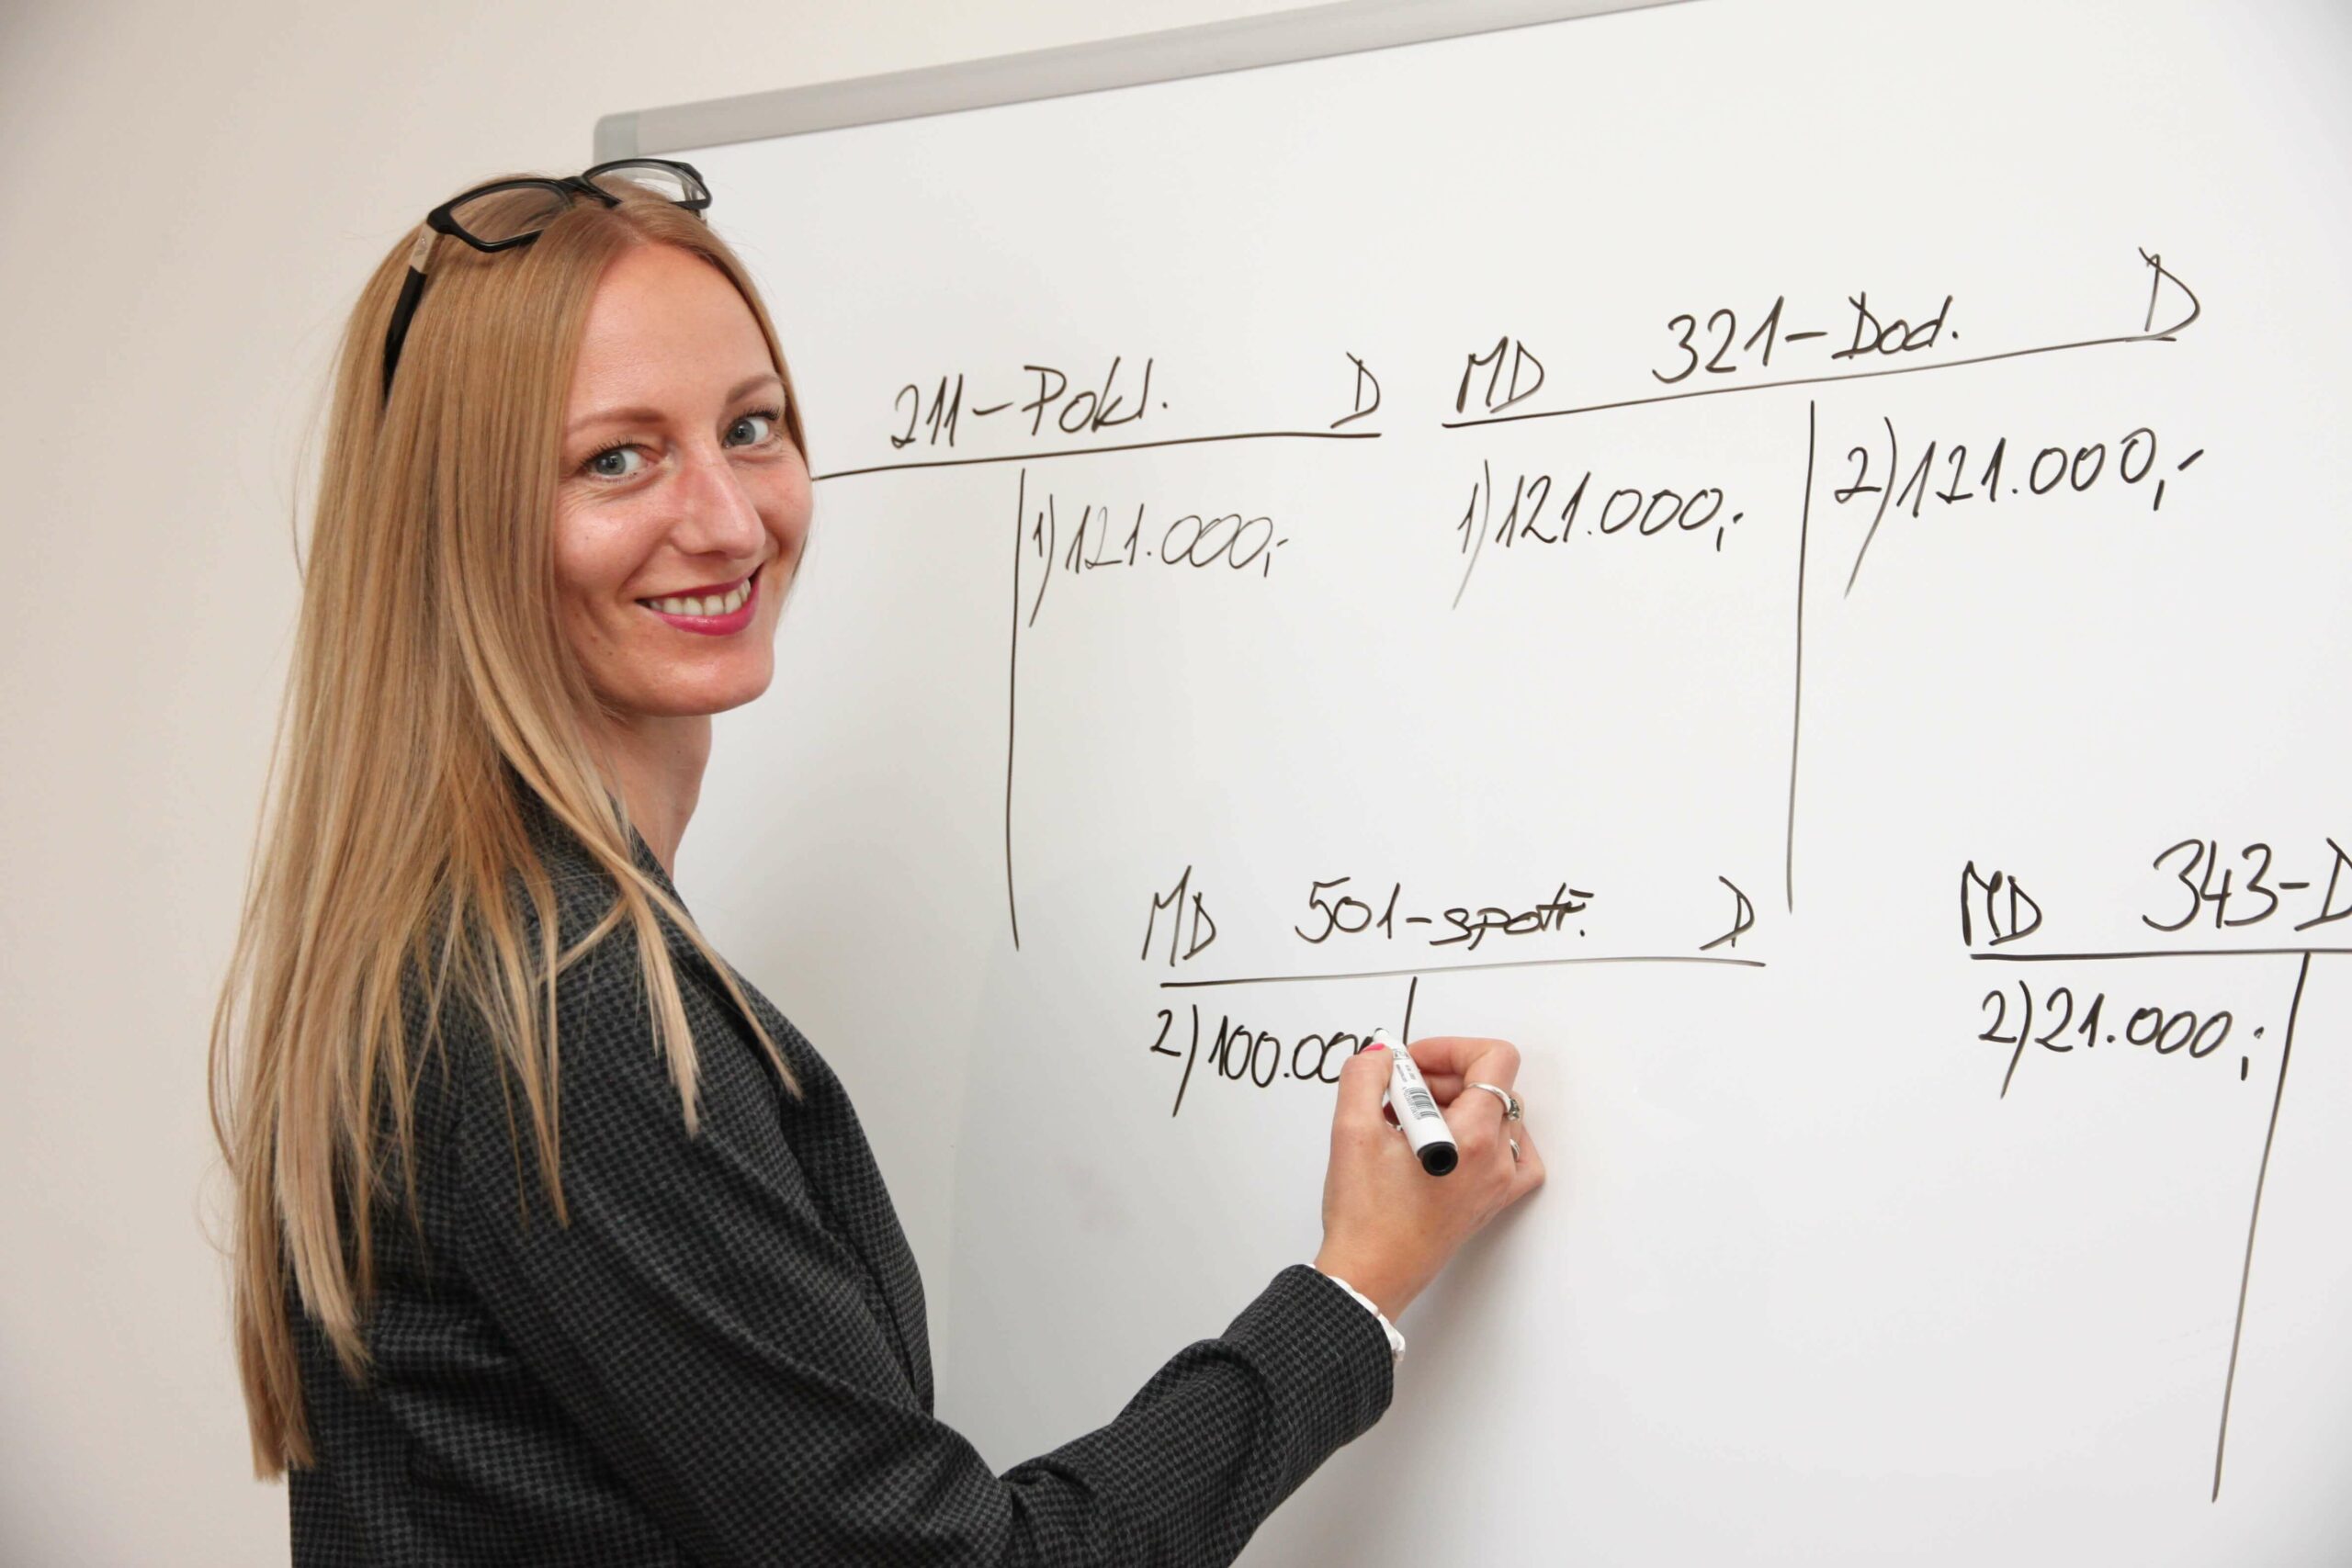 211-Pokl. D
1) 121.000,-
MD 321-Dod. D
1) 121.000,- 2) 121.000,-
MD 501-spotř. D
2) 100.00
MD 343-D
2) 21.000,-